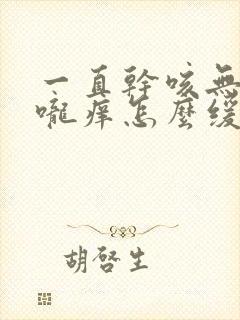 一直幹咳無
嚨癢怎麼緩
胡啓生